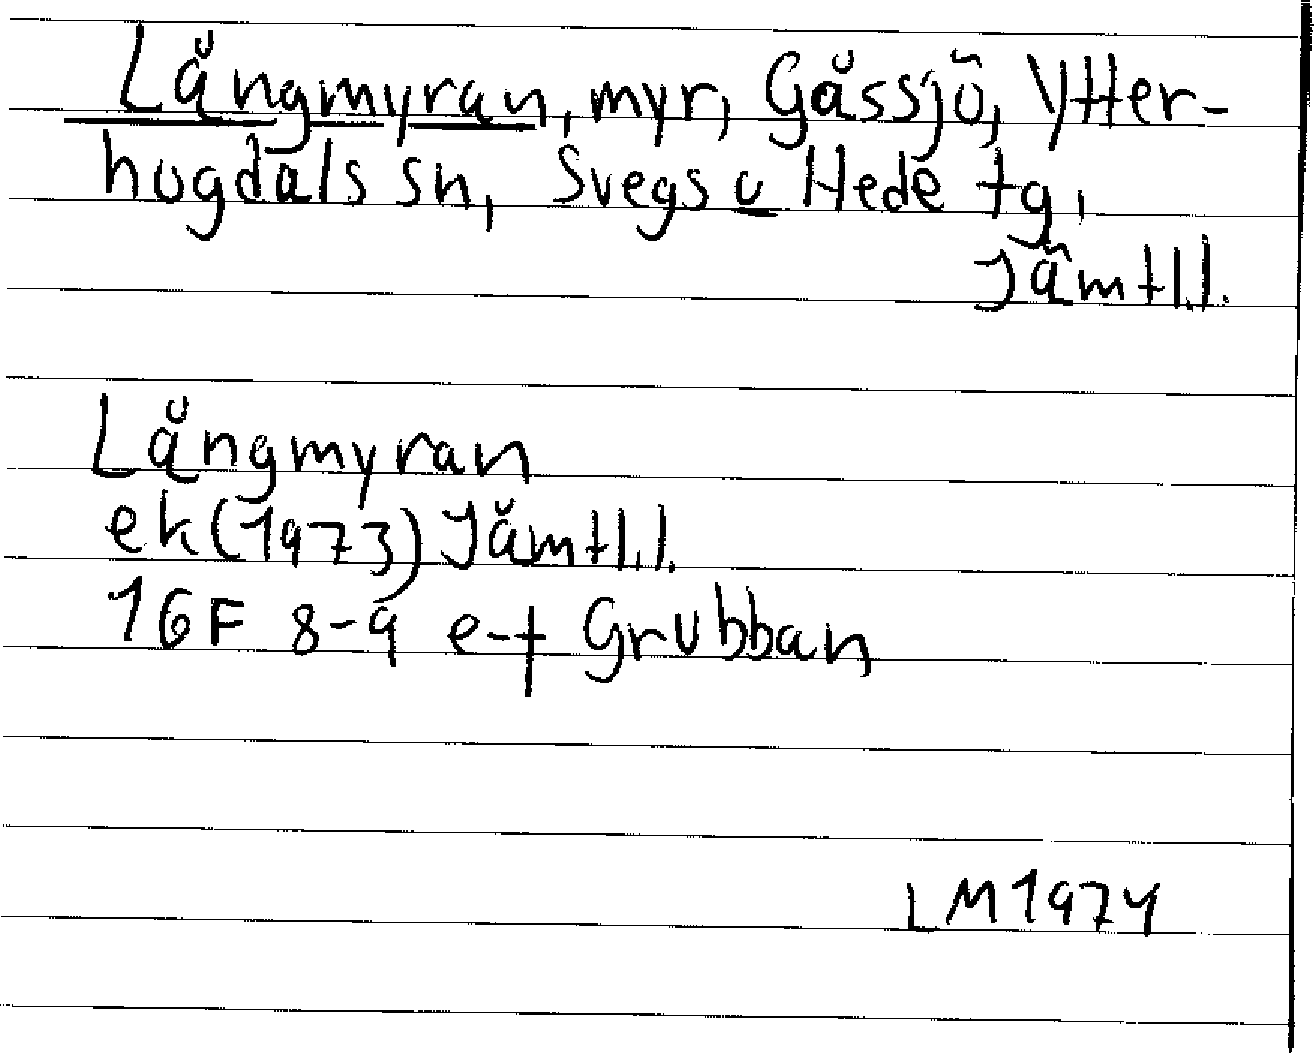 Långmyran, myr, Gåssjö, Ytter-
hogdals sn, Svegs o Hede tg,
Jämtl.l.
Långmyran
ek(1973) Jämtl.l.
16F 8-9 e-f Grubban
LM 1974